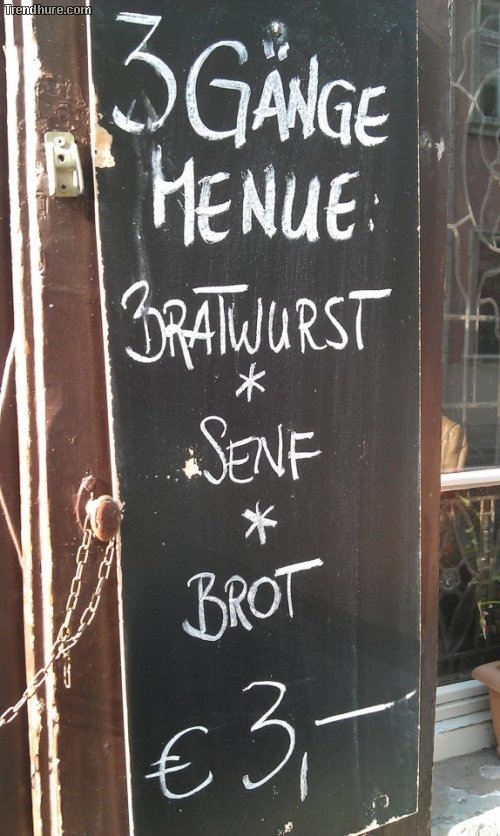 Trendhure.com
3 GÄNGE
MENUE:
BRATWURST
*
SENF
*
BROT
€ 3,—